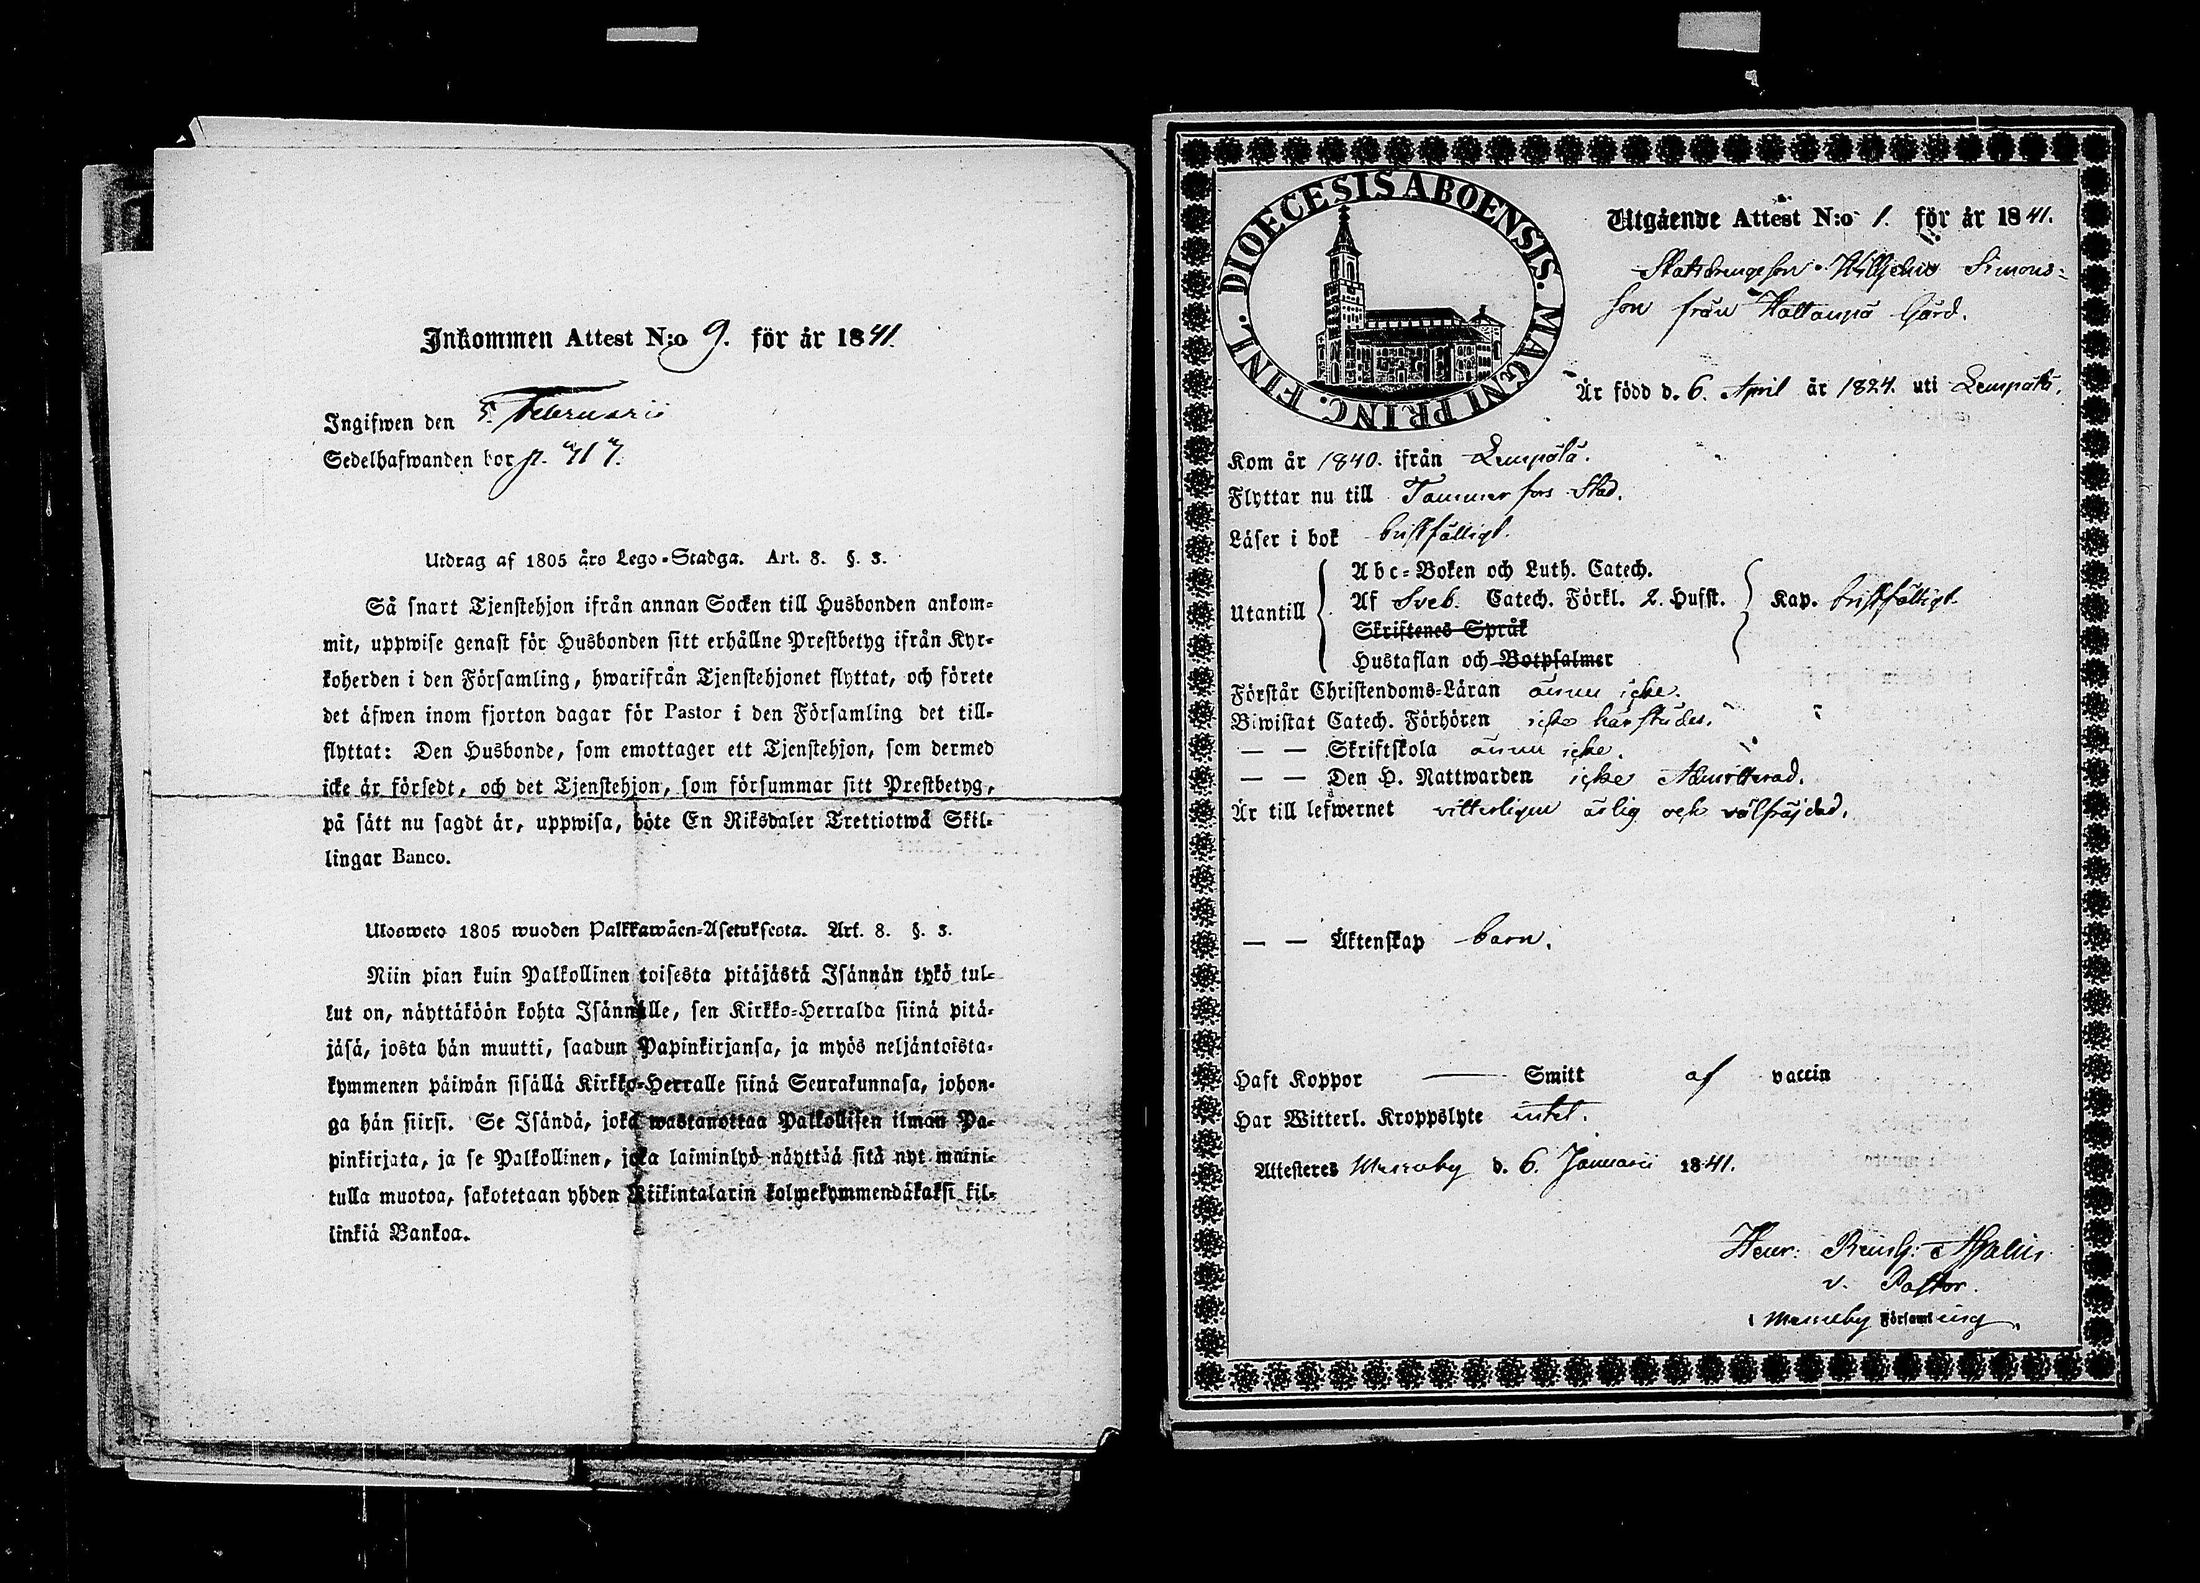 Inkommen Attest N:o 9. för år 1841.
Ingifwen den 5. Februarii
Sedelhafwanden bor
Utdrag af 1805 års Lego-Stadga. Art. 8. §. 3.
Så snart Tjenstehjon ifrån annan Socken till Husbonden ankom=
mit, uppwise genast för Husbonden sitt erhållne Prestbetyg ifrån Kyr=
koherden i den Församling, hwarifrån Tjenstehjonet flyttat, och förete
det äfwen inom fjorton dagar för Pastor i den Församling det till=
flyttat: Den Husbonde, som emottager ett Tjenstehjon, som dermed
icke är försedt, och det Tjenstehjon, som försummar sitt Prestbetyg,
på sätt nu sagdt är, uppwisa, böte En Riksdaler Trettiotwå Skil=
lingar Banco.
Ulosweto 1805 wuoden Palkkawäen-Asetuksesta. Art. 8. §. 3.
Niin pian kuin Palkollinen toisesta pitäjästä Isännän tykö tul=
lut on, näyttäköön kohta Isännälle, sen Kirkko-Herralda siinä pitä=
jäsä, josta hän muutti, saadun Papinkirjansa, ja myös neljäntoista=
kymmenen päiwän sisällä Kirkko-Herralle siinä Seurakunnasa, johon=
ga hän siirsi. Se Isändä, joka wastanottaa Palkollisen ilman Pa=
pinkirjata, ja se Palkollinen, joka laiminlyö näyttää sitä nyt maini=
tulla muotoa, sakotetaan yhden Riikintalarin kolmekymmendäkaksi kil=
linkiä Bankoa.
DIOECESIS ABOENSIS. MAGNI PRINC. FINL.
Utgående Attest N:o 1. för år 1841.
Statsdrengeson Wilhelm Simons=
son från Hattanpä Gård.
Är född d. 6. April år 1824. uti Lempälä.
Kom år 1840. ifrån Lempälä.
Flyttar nu till Tammerfors Stad.
Läser i bok bristfälligt.
Utantill
Abc-Boken och Luth. Catech.
Af Sveb. Catech. Förkl. 2. Hufst.
Skriftenes Språk
Hustaflan och Botpsalmer
Kap. bristfälligt
Förstår Christendoms-Läran ännu icke.
Biwistat Catech. Förhören icke härstädes.
— — Skriftskola ännu icke.
— — Den H. Nattwarden icke Admitterad.
Är till lefwernet vitterligen ärlig och välfräjdad.
— — Äktenskap barn.
Haft Koppor — Smitt af vaccin
Har Witterl. Kroppslyte intet.
Attesteras Messuby d. 6. Januarii 1841.
Henr:
v. Pastor.
i Messuby Församling